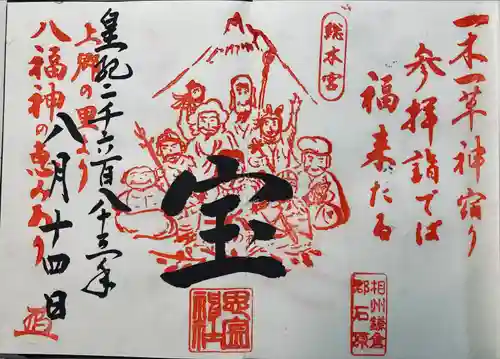 一木一草神宿り
参拝詣では
福来たる
総本宮
宝
相州鎌倉
郡石原
皇紀二千六百八十三年
八月十四日
上郷の里より
八福神の恵みあり